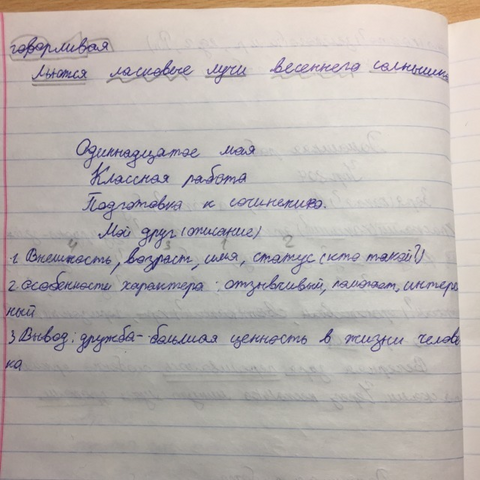 говорливая
Льются ласковые лучи весеннего солнышка
Одиннадцатое мая
Классная работа
Подготовка к сочинению.
Мой друг (описание)
4 3 1 2
1. Внешность, возраст, имя, статус (кто такой?)
2. особенности характера: отзывчивый, помогает, интерес
ный
3. Вывод: дружба - большая ценность в жизни челове
ка